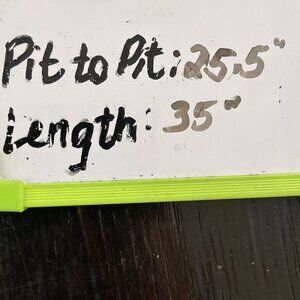 Pit to Pit: 25.5"
Length: 35"